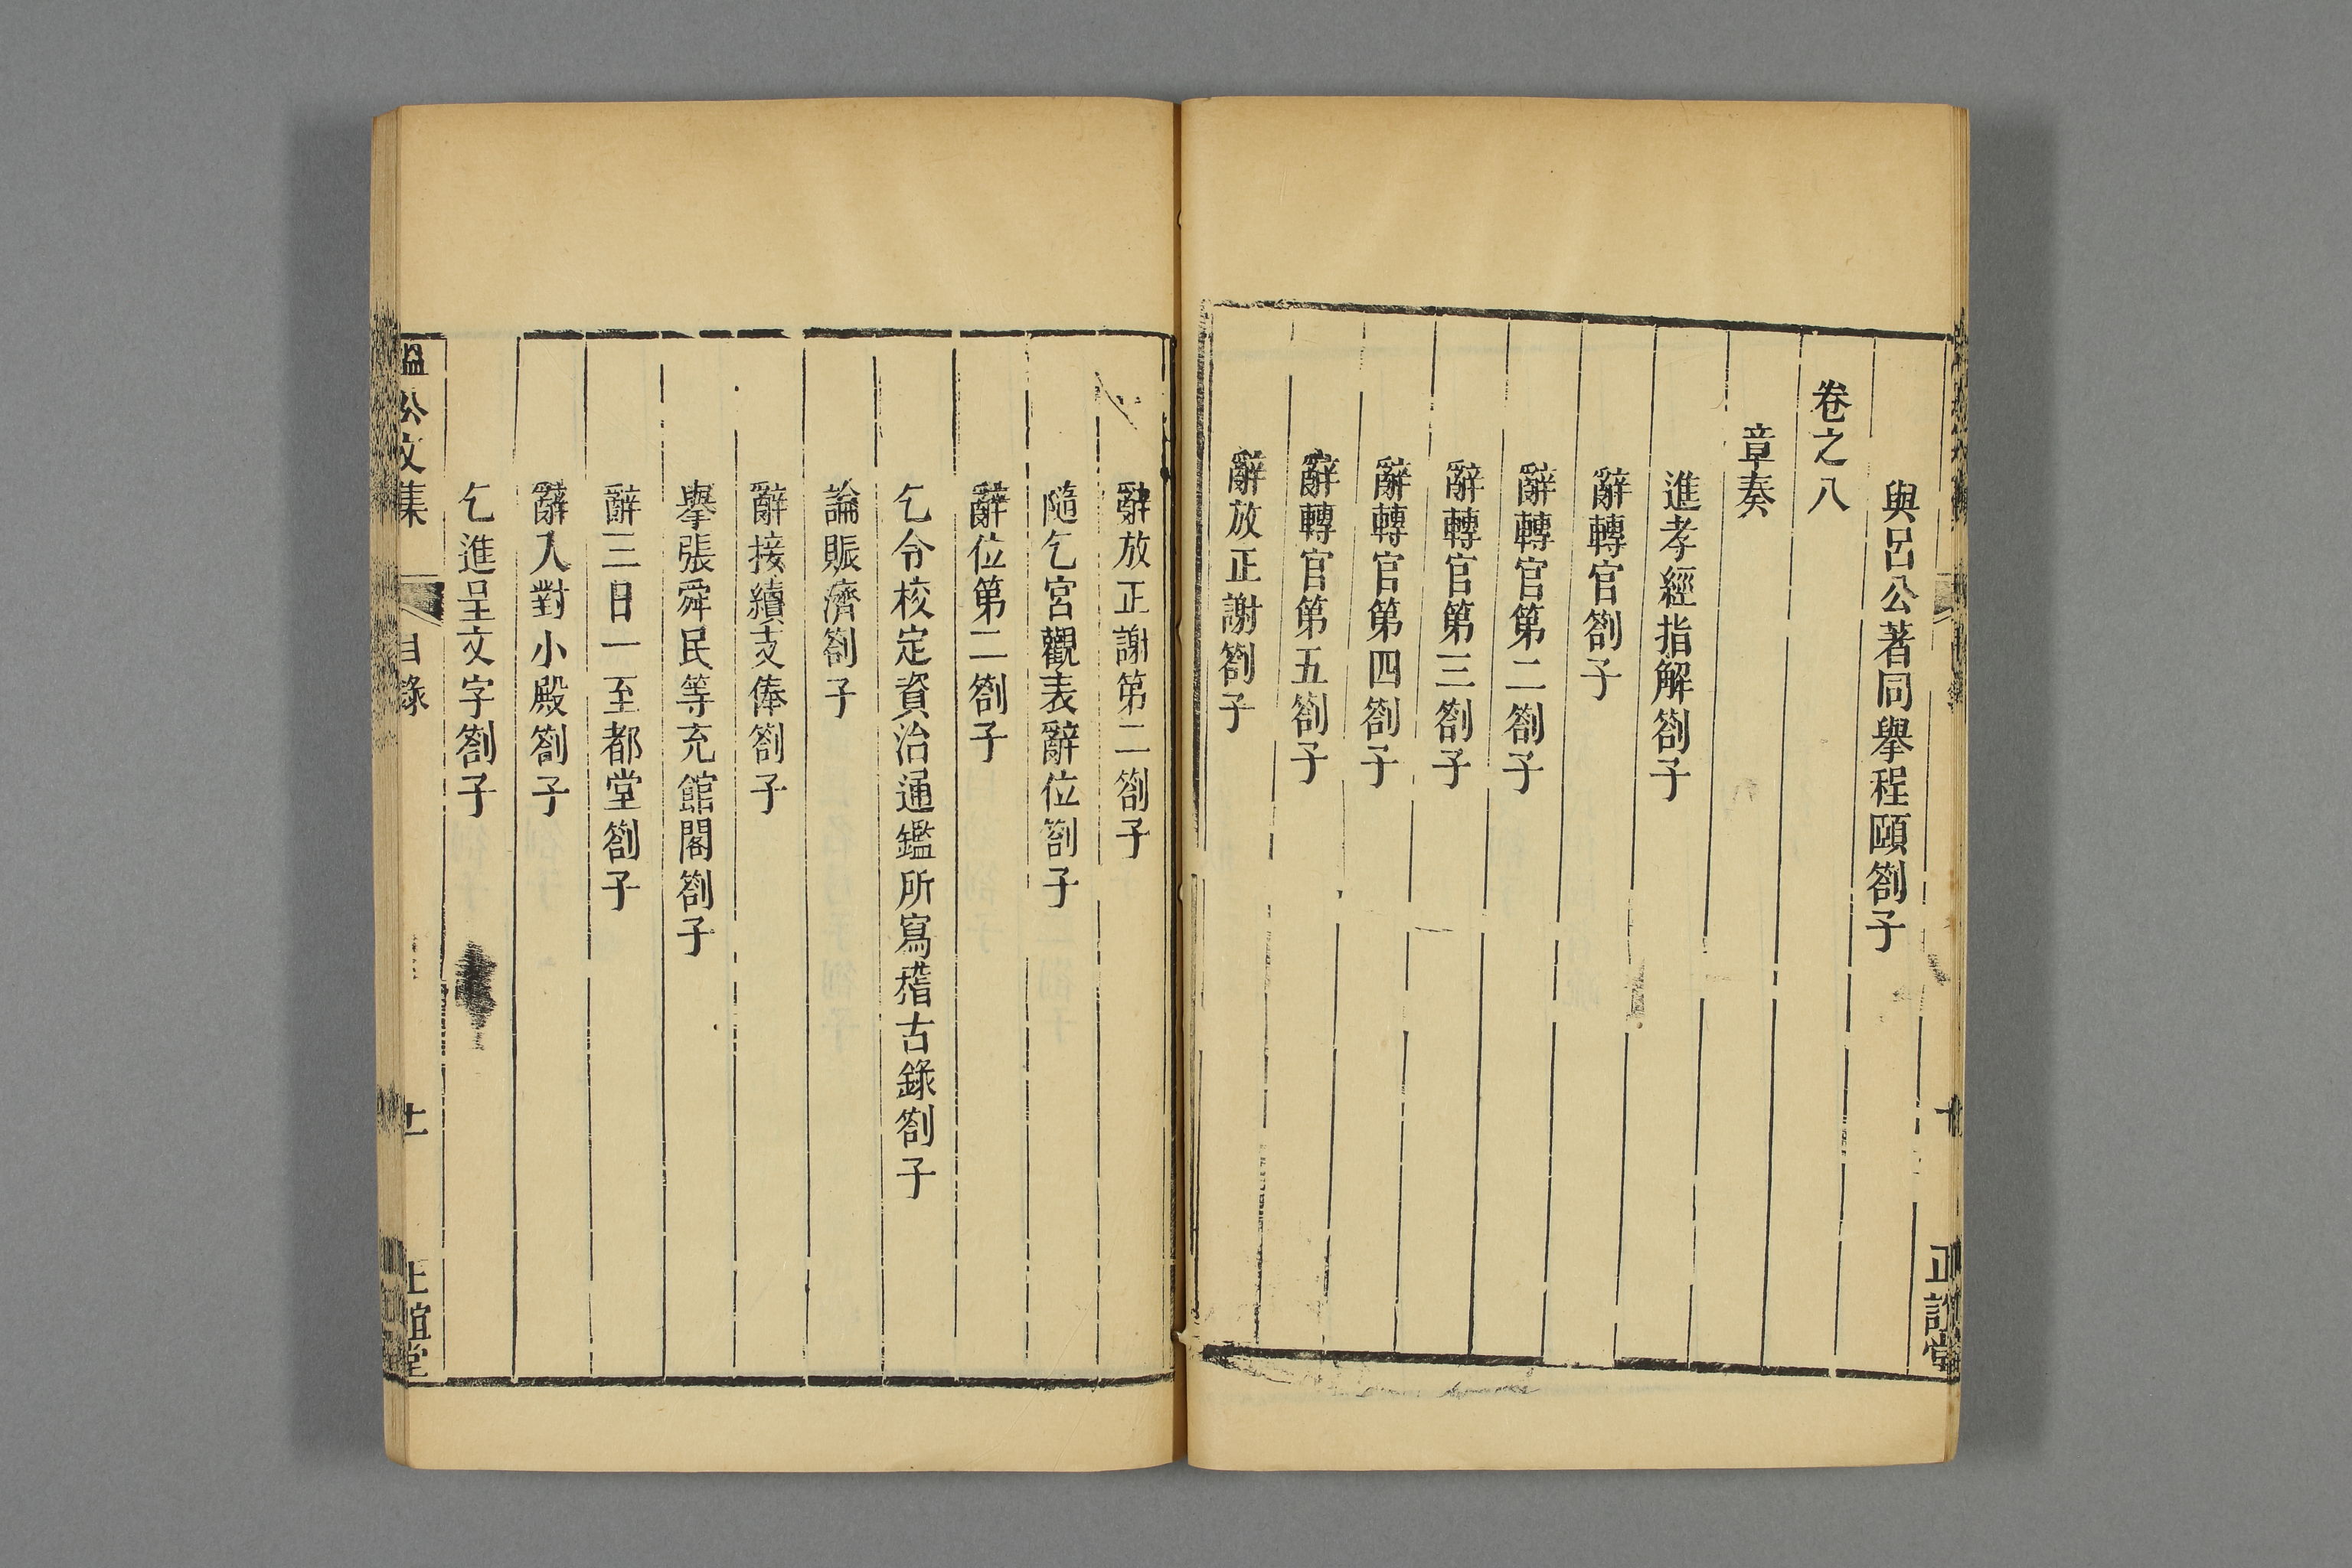 與呂公著同舉程頤劄子
卷之八
章奏
進孝經指解劄子
辭轉官劄子
辭轉官第二劄子
辭轉官第三劄子
辭轉官第四劄子
辭轉官第五劄子
辭放正謝劄子
辭放正謝第二劄子
隨乞宮觀表辭位劄子
辭位第二劄子
乞令校定資治通鑑所寫稽古錄劄子
論賑濟劄子
辭接續支俸劄子
舉張舜民等充館閣劄子
辭三日一至都堂劄子
辭入對小殿劄子
乞進呈文字劄子
溫公文集
目錄
十一
正誼堂